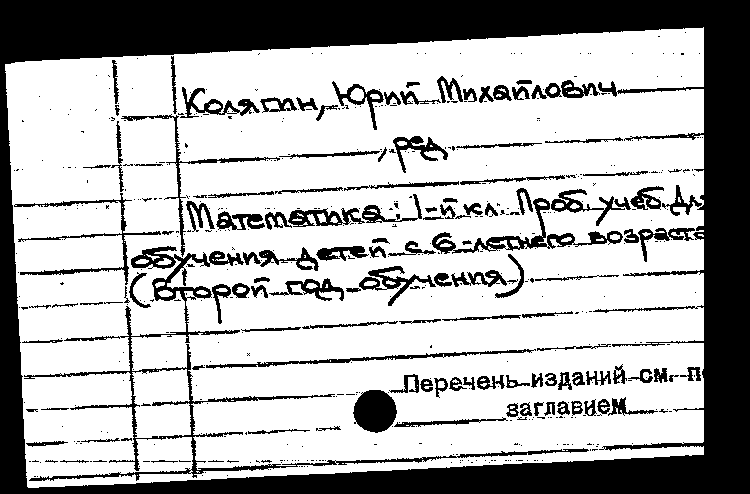 Колягин, Юрий Михайлович
, ред
Математика: 1-й кл. Проб. учеб для
обучения детей с 6-летнего возраста
(Второй год обучения).
Перечень изданий см. п
заглавием